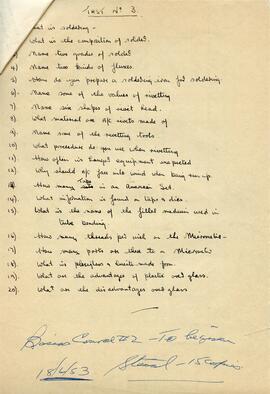 TEST Nº 3.
at is soldering -
What is the composition of solder.
Name two grades of solder.
4). Name two kinds of fluxes.
5). How do you prepare a soldering iron for soldering.
6). Name some of the values of rivetting
7). Name six shapes of rivet head.
8). What material are a/c rivets made of
9). Name some of the rivetting tools.
10). What procedure do you use when rivetting
11). How often is hangar equipment inspected
12). Why should a/c face into wind when being run-up.
How many taps in an American Set.
14). What information is found on taps & dies.
15). What is the name of the filler medium used in
tube bending.
16). How many threads per inch on the Micrometer -
17). How many parts are there to a Micrometer
18). What is plexiglass & lucite made from.
19). What are the advantages of plastic over glass.
20). What are the disadvantages over glass
18/4/53 Stencil - 15 copies